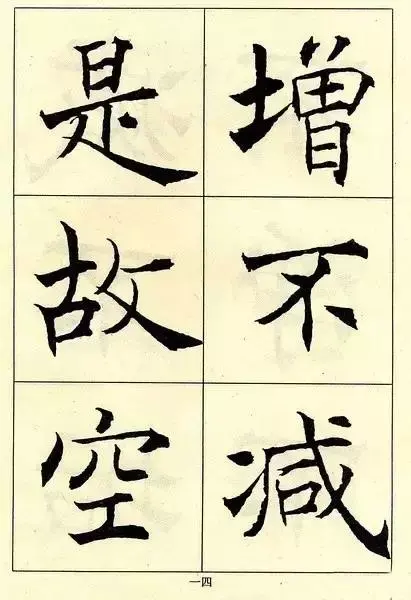 增不減
是故空
一四